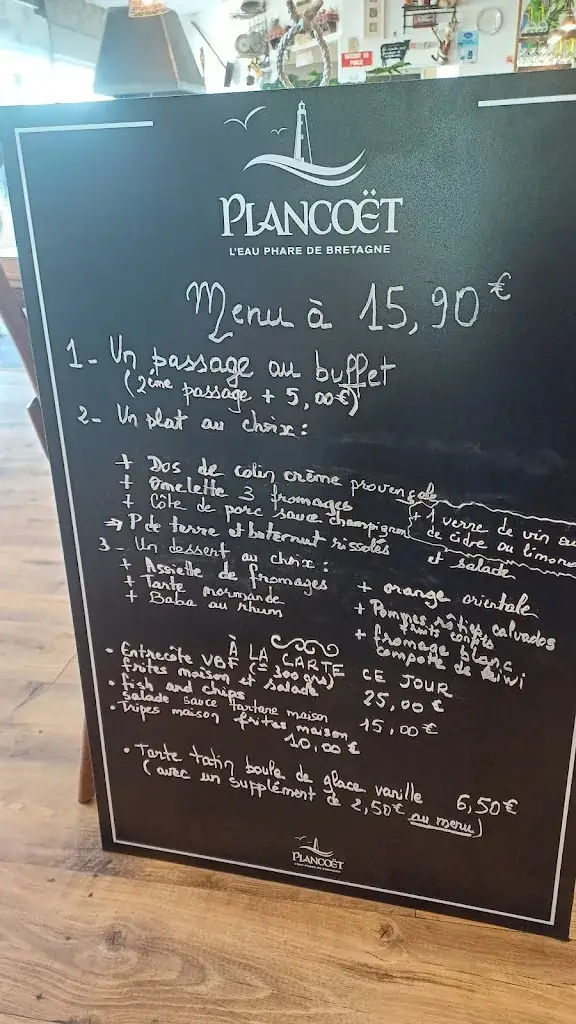 PLANCOËT
L'EAU PHARE DE BRETAGNE
Menu à 15,90€
1- Un passage au buffet
(2ème passage + 5,00€)
2- Un plat au choix :
+ Dos de colin crème provençale
+ Omelette 3 fromages
+ Côte de porc sauce champignon
→ P de terre et buternut rissolés
et salade
+ 1 verre de vin ou
de cidre ou limona
3- Un dessert au choix :
+ Assiette de fromages
+ Tarte normande
+ Baba au rhum
+ orange orientale
+ Pommes rôties calvados
fruits confits
+ fromage blanc
compote de kiwi
À LA CARTE CE JOUR
• Entrecôte VBF (= 300 grs)
frites maison et salade 25,00 €
• fish and chips
salade sauce tartare maison 15,00 €
• Tripes maison frites maison
10,00 €
• Tarte tatin boule de glace vanille 6,50€
(avec un supplément de 2,50€ au menu)
PLANCOËT
L'EAU PHARE DE BRETAGNE